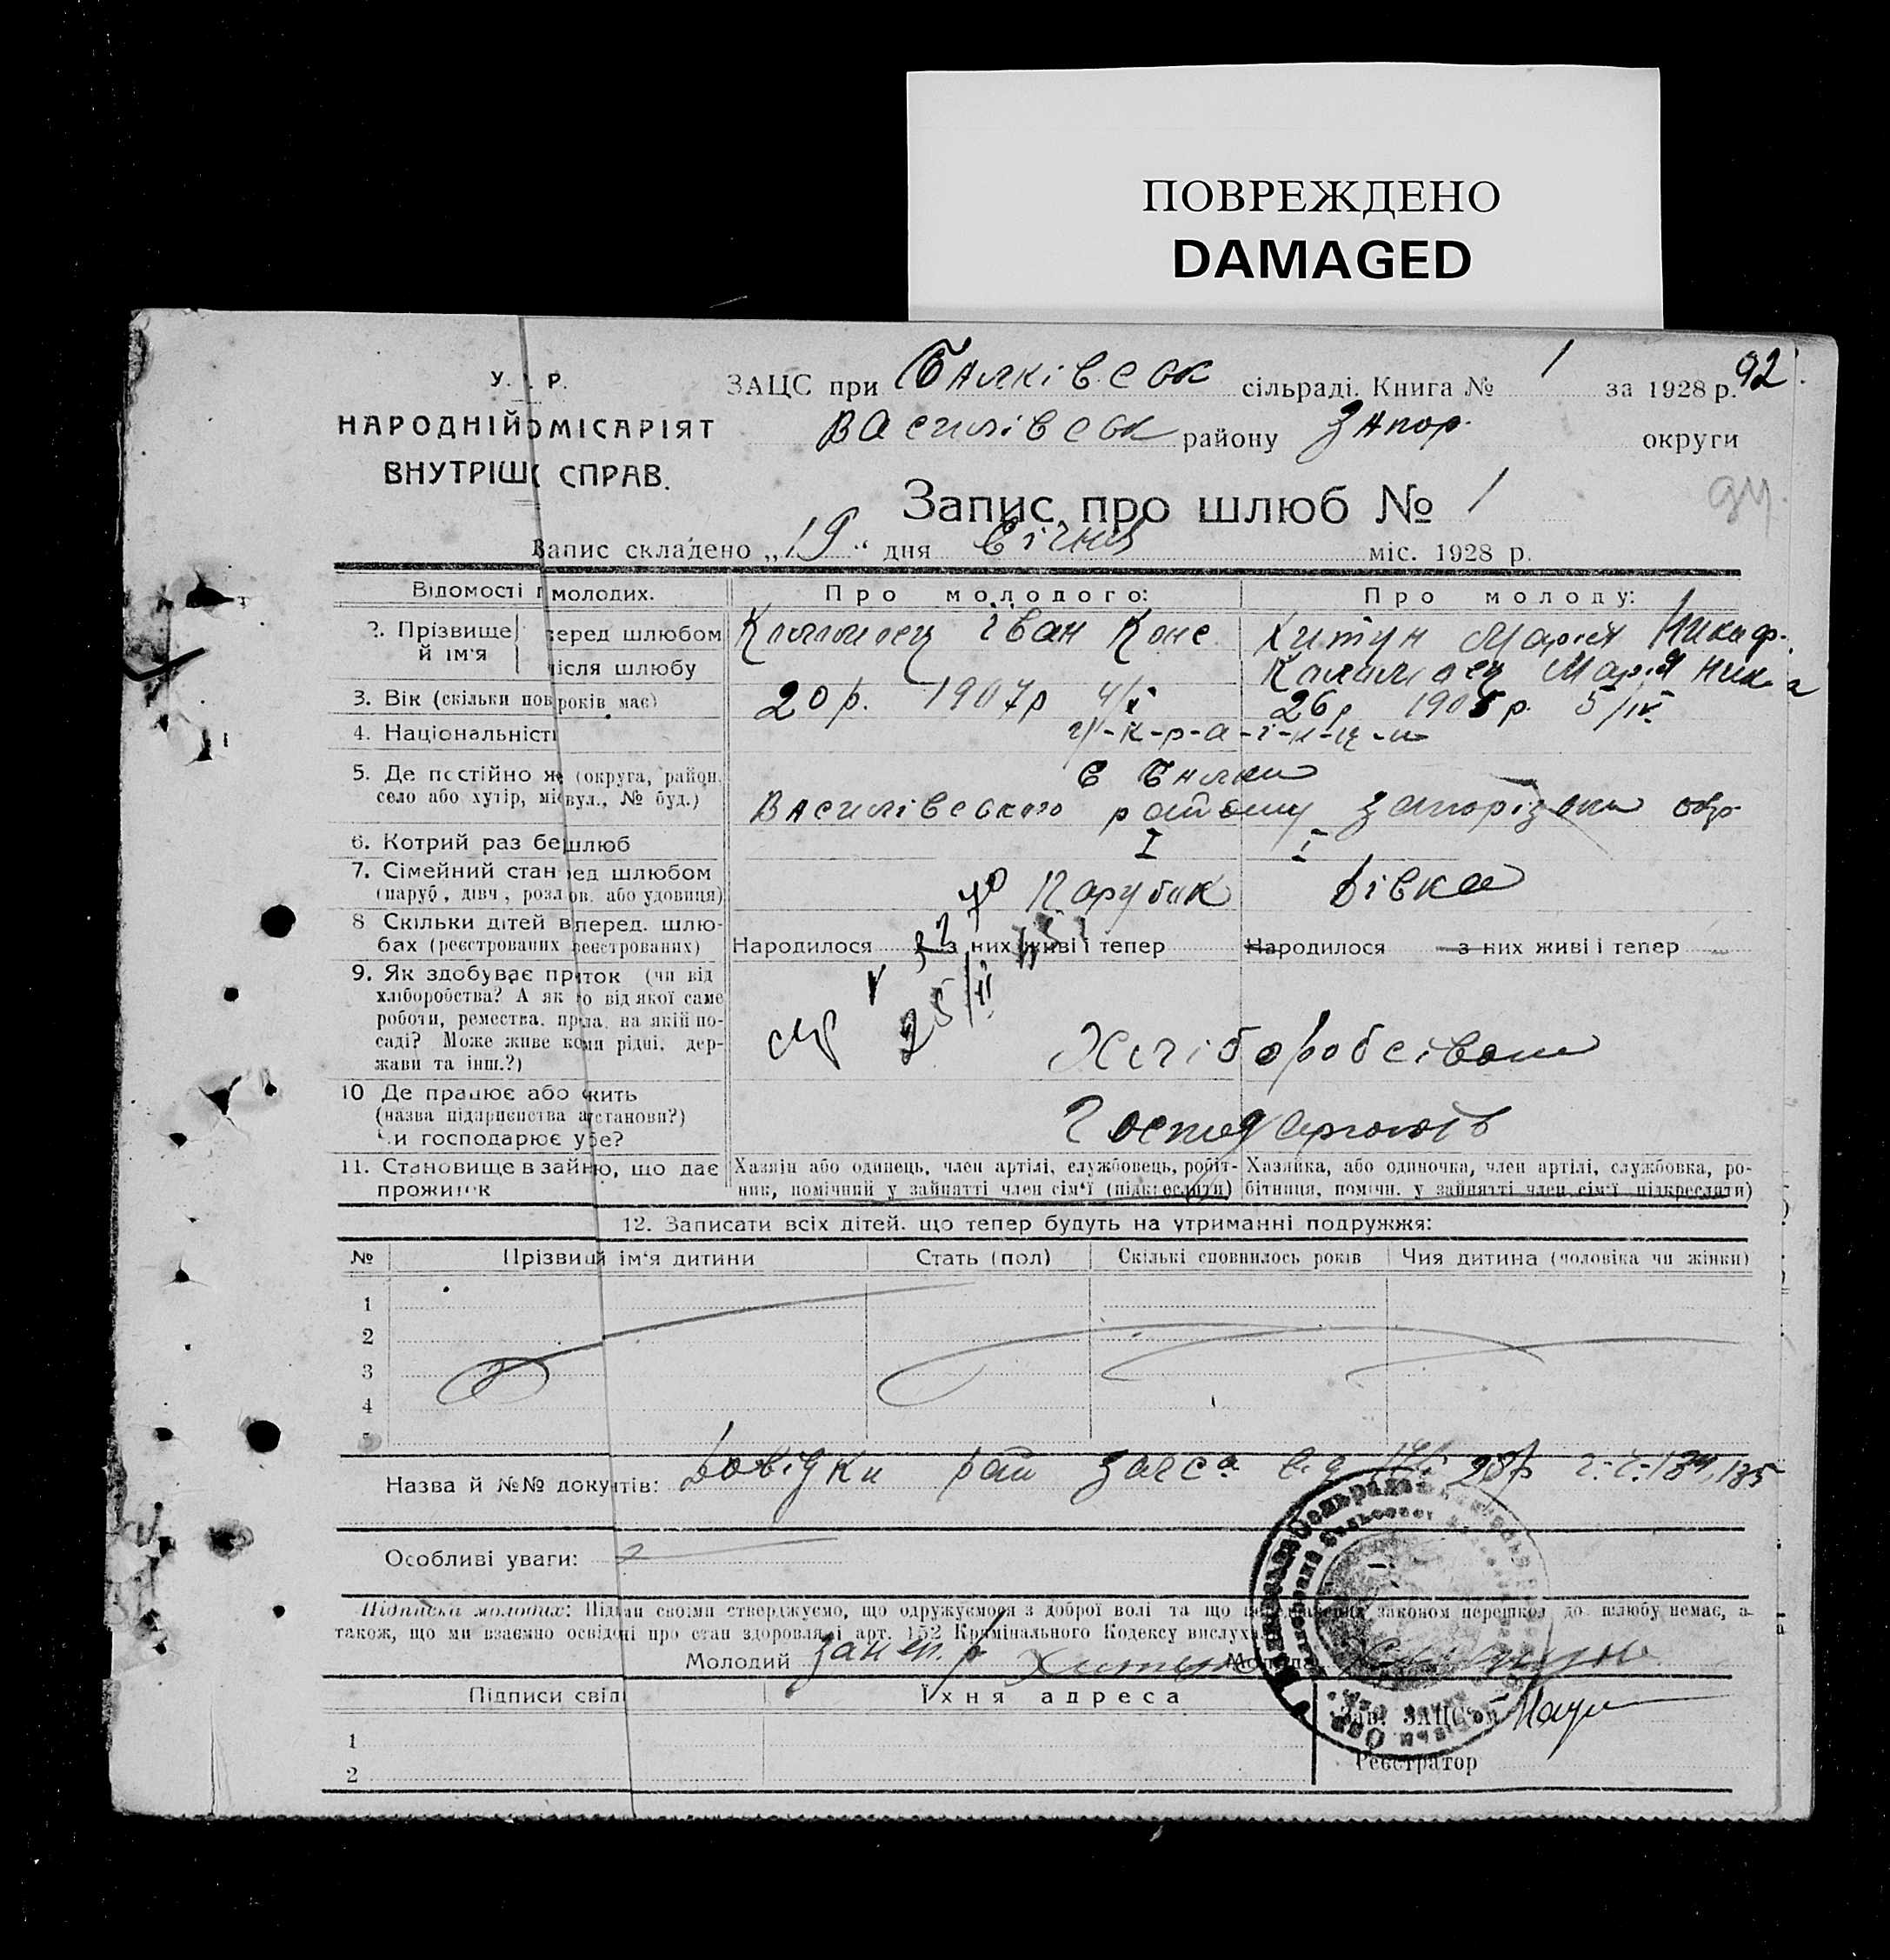 ПОВРЕЖДЕНО
DAMAGED
У. Р.
НАРОДНІЙ ОМІСАРІЯТ
ВНУТРІШ СПРАВ.
ЗАЦС при Балківськ сільраді. Книга № 1 за 1928 р. 92
Василівськ району Запор. округи
Запис про шлюб № 1
94
Запис складено „19“ дня Січня міс. 1928 р.
Відомості молодих. Про молодого: Про молоду:
2. Прізвище й ім'я
перед шлюбом Іван Конс Хитун Марія Никиф.
після шлюбу Марія
3. Вік (скільки пов років має) 20 р. 1907 р 26 р 190 р. 5/IV
4. Національніст у-к-р-а-ї-н-ц-и
5. Де постійно ж (округа, район, село або хутір, мі вул., № буд.) с Балки
Василівського району Запорізьки окр
6. Котрий раз бе шлюб I I
7. Сімейний стан ред шлюбом Парубок Дівка
(паруб., дівч., розл ов. або удовиця)
8 Скільки дітей в перед. шлю-
бах (реєстрованих реєстрованих) Народилося з них живі і тепер Народилося з них живі і тепер
9. Як здобуває пр ток (чи від
хліборобства? А як о від якої саме
роботи, ремества, пр ла, на якій по-
саді? Може живе ко ми рідні, дер-
жави та інш.?) 25/II Хліборобсівом
10 Де працює або жить
(назва підприємства а станови?) Господарюють
и господарює у бе?
11. Становище в зайн ю, що дає Хазяїн або одинець, член артілі, службовець, робіт- Хазяйка, або одиночка, член артілі, службовка, ро-
прожиток ник, помічний у зайнятті член сім'ї (підкреслити) бітниця, помічн. у зайнятті член сім'ї підкреслити)
12. Записати всіх дітей, що тепер будуть на утриманні подружжя:
№ Прізвищ й ім'я дитини Стать (пол) Скількі сповнилось років Чия дитина (чоловіка чи жінки)
1
2
3
4
Назва й №№ доку тів: Довідки рай загса 134, 135
Особливі уваги:
Підписи молодих: Підп ми своїми стверджуємо, що одружуємося з доброї волі та що законом перешкод до шлюбу немає, а
також, що ми взаємно освідо ні про стан здоровля і арт. 152 Кримінального Кодексу вислуха
Молодий Хитун
Підписи свід Їхня адреса
Зав. ЗАЦС
1
Реєстратор
2